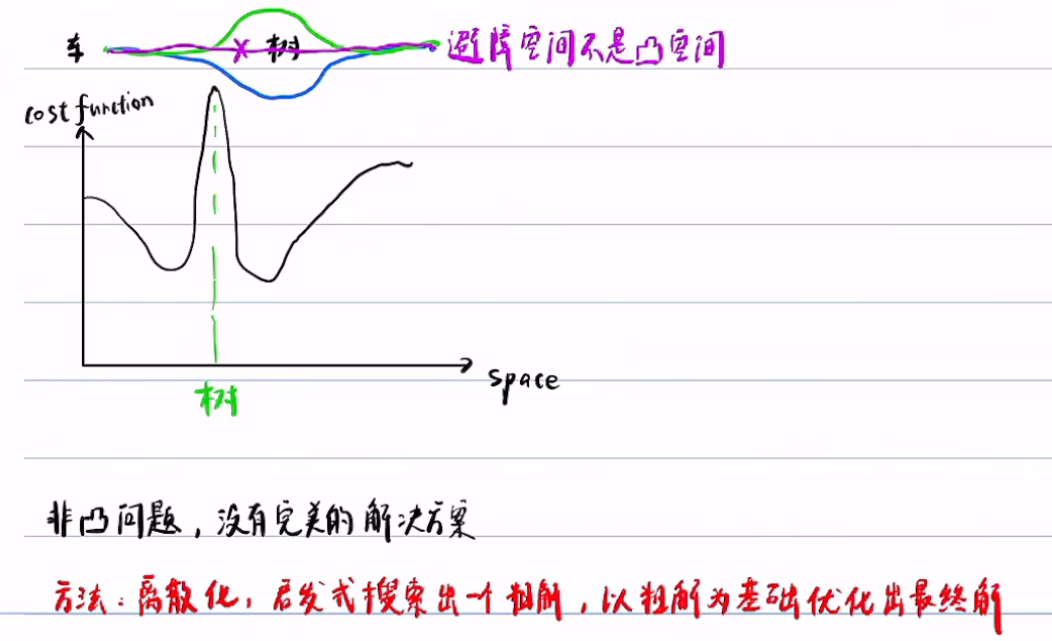 车 树 避障空间不是凸空间
cost function
space
树
非凸问题，没有完美的解决方案
方法：离散化，启发式搜索出一个粗解，以粗解为基础优化出最终解